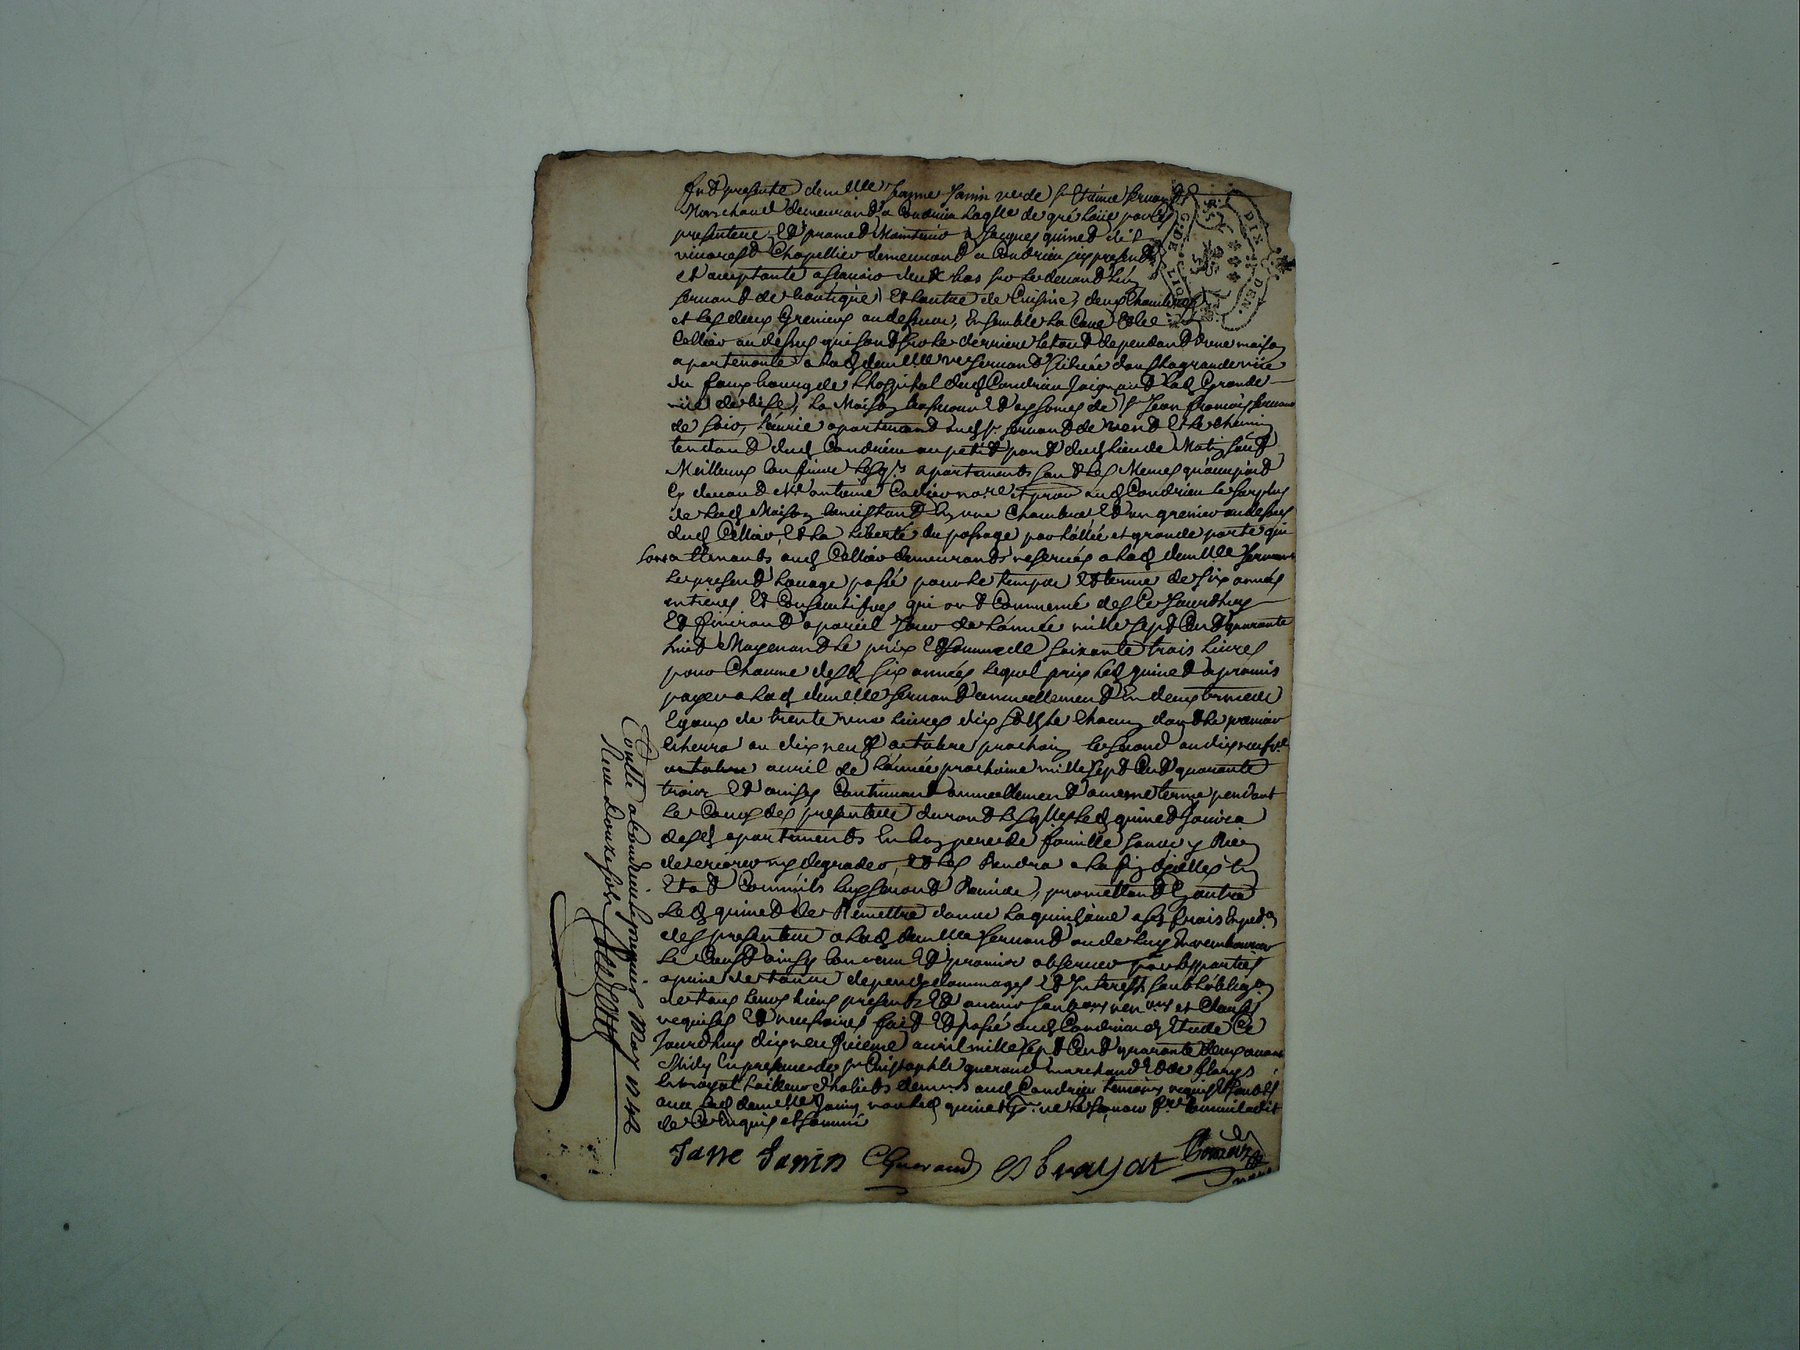 fut presente demlle Jeanne Janin veve sr Etienne fernand
Marchand demeurant a Condrieu laqlle de gré loüe par les
presentes et promet Maintenir a Jacques quinet dit
vivarest Chapellier demeurant a Condrieu icy present
et acceptant asscavoir deux bas sur le devant lun
servant de boutique et lautre de Cuisine, deux Chambres
et les deux Greniers audessus, Ensemble la Cave et le
Cellier au dessus qui sont sur le derriere le tout dependant dune maison
apartenante a lad demlle ve fernand scituée dans la grande rüe
du faux bourg de Lhospital dud Condrieu Joignant lad Grande
rüe de bise, la Maison de sr Jean françois fernand
de soir, lecurie apartenant aud sr fernand de vent et le chemin
tendant dud Condrieu au petit pont dud lieu de Matin sauf
Meilleurs Confins lesqs apartements sont les Memes
de lad Maison Consistant En une Chambre et un grenier au dessus
dud Cellier, et la liberté du passage par lallée et grande porte qui
sont attenants aud Cellier demeurants reservés a lad demlle fernand
le present louage passé pour le temps et terme de six années
entieres et Consecutifves qui ont Commencé des Ce Jourdhuy
et finiront a pareil Jour de lannée mille sept Cent quarante
huit Moyenant le prix et somme de soixante trois livres
pour Chacune desd six années lequel prix led quinet a promis
payer a lad demlle fernand annuellement En deux termes
Egaux de trente une livres dix sols le Chacun dont le premier
Escherra au dix neuf octobre prochain le second au dix neufve
octobre avril de lannée prochaine mille sept Cent quarante
trois et ainsy Continuant annuellement a meme terme pendant
le Cours des presentes durant lesqlles led quinet Jouira
desd apartements En bon pere de famille sans y Rien
deteriorer ny degrader, et les Rendra a la fin dicelles En
Etat Comme ils luy seront Remis, promettant En outre
led quinet de Remettre dans la quinzaine a ses frais Expedon
des presentes a lad demlle fernand ou de luy En rembourser
le Cout ainsy Convenu et promis observer par les parties
a peine de tous depends dommages et Interests sous lobligaon
de tous leurs biens presents et avenir et Clauses
requises et necessaires fait et passé aud Condrieu Etude Ce
Jourdhuy dix neufvieme avril mille sept Cent quarante deux avant
Midy En presence de sr Christophle guerand marchand et de
brayat tailleur dhabits demts aud Condrieu temoins requis
avec lad demlle Janin non led quinet pr ne le scavoir
de Ce Enquis et sommé
Jane Janin CGuerand brayat
Conlle a Condrieu le May 1742
Reçu douze sols
DIS DEN.
G. DE LION